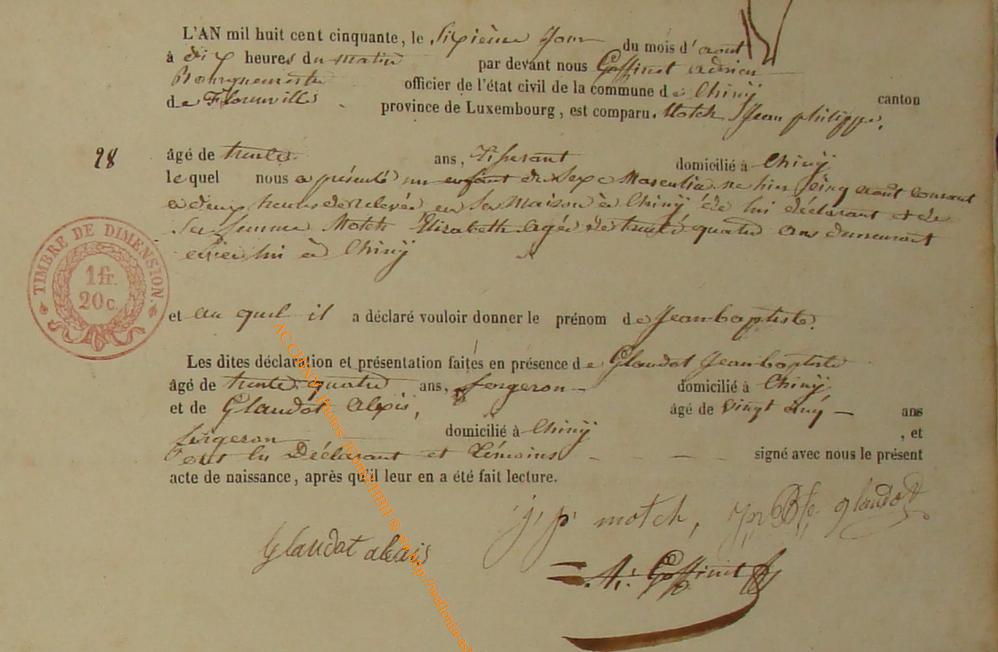 L'AN mil huit cent cinquante, le Sixième Jour du mois d'aout
à dix heures du matin par devant nous Goffinet adrien
Bourguemestre officier de l'état civil de la commune de Chinÿ canton
de Florenville province de Luxembourg, est comparu Motch Jean philippe,
28 âgé de trente ans, Tisserant domicilié à Chinÿ
lequel nous a présenté un enfant de Sexe Masculin né hier cinq aout courant
a deux heures de relevée en Sa Maison à Chinÿ de lui déclarant et de
Sa femme Motch Elizabeth agée de trente quatre ans demeurant
avec lui à Chinÿ
TIMBRE DE DIMENSION.
1 fr.
20 c.
et au quel il a déclaré vouloir donner le prénom de Jean baptiste.
Les dites déclaration et présentation faites en présence de Glaudot Jean baptiste
âgé de trente quatre ans, forgeron domicilié à Chinÿ
et de Glaudot alexis, âgé de vingt cinq ans
forgeron domicilié à Chinÿ , et
ont les Déclarant et Témoins signé avec nous le présent
acte de naissance, après qu'il leur en a été fait lecture.
j, p, motch, Glaudot
Glaudot alexis
A. Goffinet